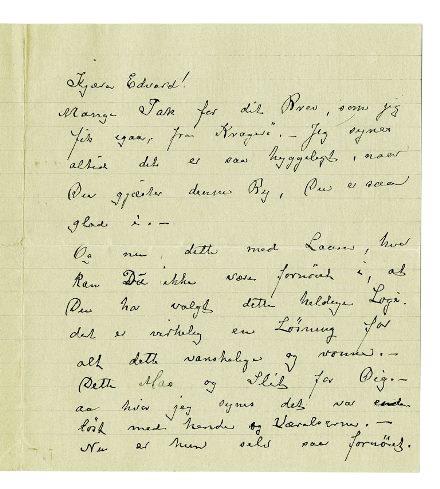 Kjære Edvard!
Mange Tak for dit Brev, som jeg
fik igaar, fra Kragerö. – Jeg synes
altid det er saa hyggeligt, naar
Du gjæster denne By, Du er saa
glad i. –
Og nu dette med Laura, hvor
kan Du ikke være fornöiet i, at
Du har valgt dette heldige Logi.
det er virkelig en Lösning for
alt dette vanskelige og vonne. –
Dette Mas og Slit for Dig. –
aa hvor jeg synes det var
löst med hende og Værelserne. –
Nu er hun selv saa fornöiet.